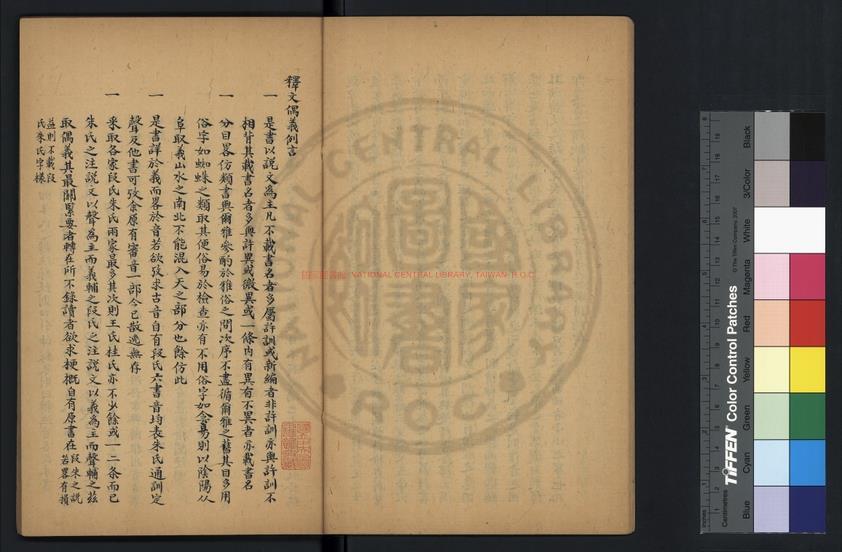 釋文偶義例言
一 是書以說文為主凡不載書名者多屬許訓或新編者非許訓亦與許訓不
相背其載書名者多與許異或微異或一條內有異有不異者亦載書名
一 分目畧仿類書與爾雅參酌於雅俗之間次序不盡循爾雅之舊其目多用
俗字如蜘蛛之類取其便俗易於檢查亦有不用俗字如侌昜別以陰陽从
阜取義山水之南北不能混入天之部分也餘仿此
一 是書詳於義而畧於音若欲攷求古音自有段氏六書音均表朱氏通訓定
聲及他書可攷余原有審音一部今已散逸無存
一 采取各家段氏朱氏兩家最多其次則王氏桂氏亦不少餘或一二条而已
朱氏之注說文以聲為主而義輔之段氏之注說文以義為主而聲輔之茲
取偶義其最關緊要者轉在所不錄讀者欲求梗概自有原書在 段朱之說
若畧有損
益則不載段
氏朱氏字樣
CENTRAL LIBRARY
R.O.C.
國家圖書館 NATIONAL CENTRAL LIBRARY, TAIWAN, R.O.C
TIFFEN Color Control Patches
© The Tiffen Company, 2007
Centimetres
Inches
Blue
Cyan
Green
Yellow
Red
Magenta
White
3/Color
Black